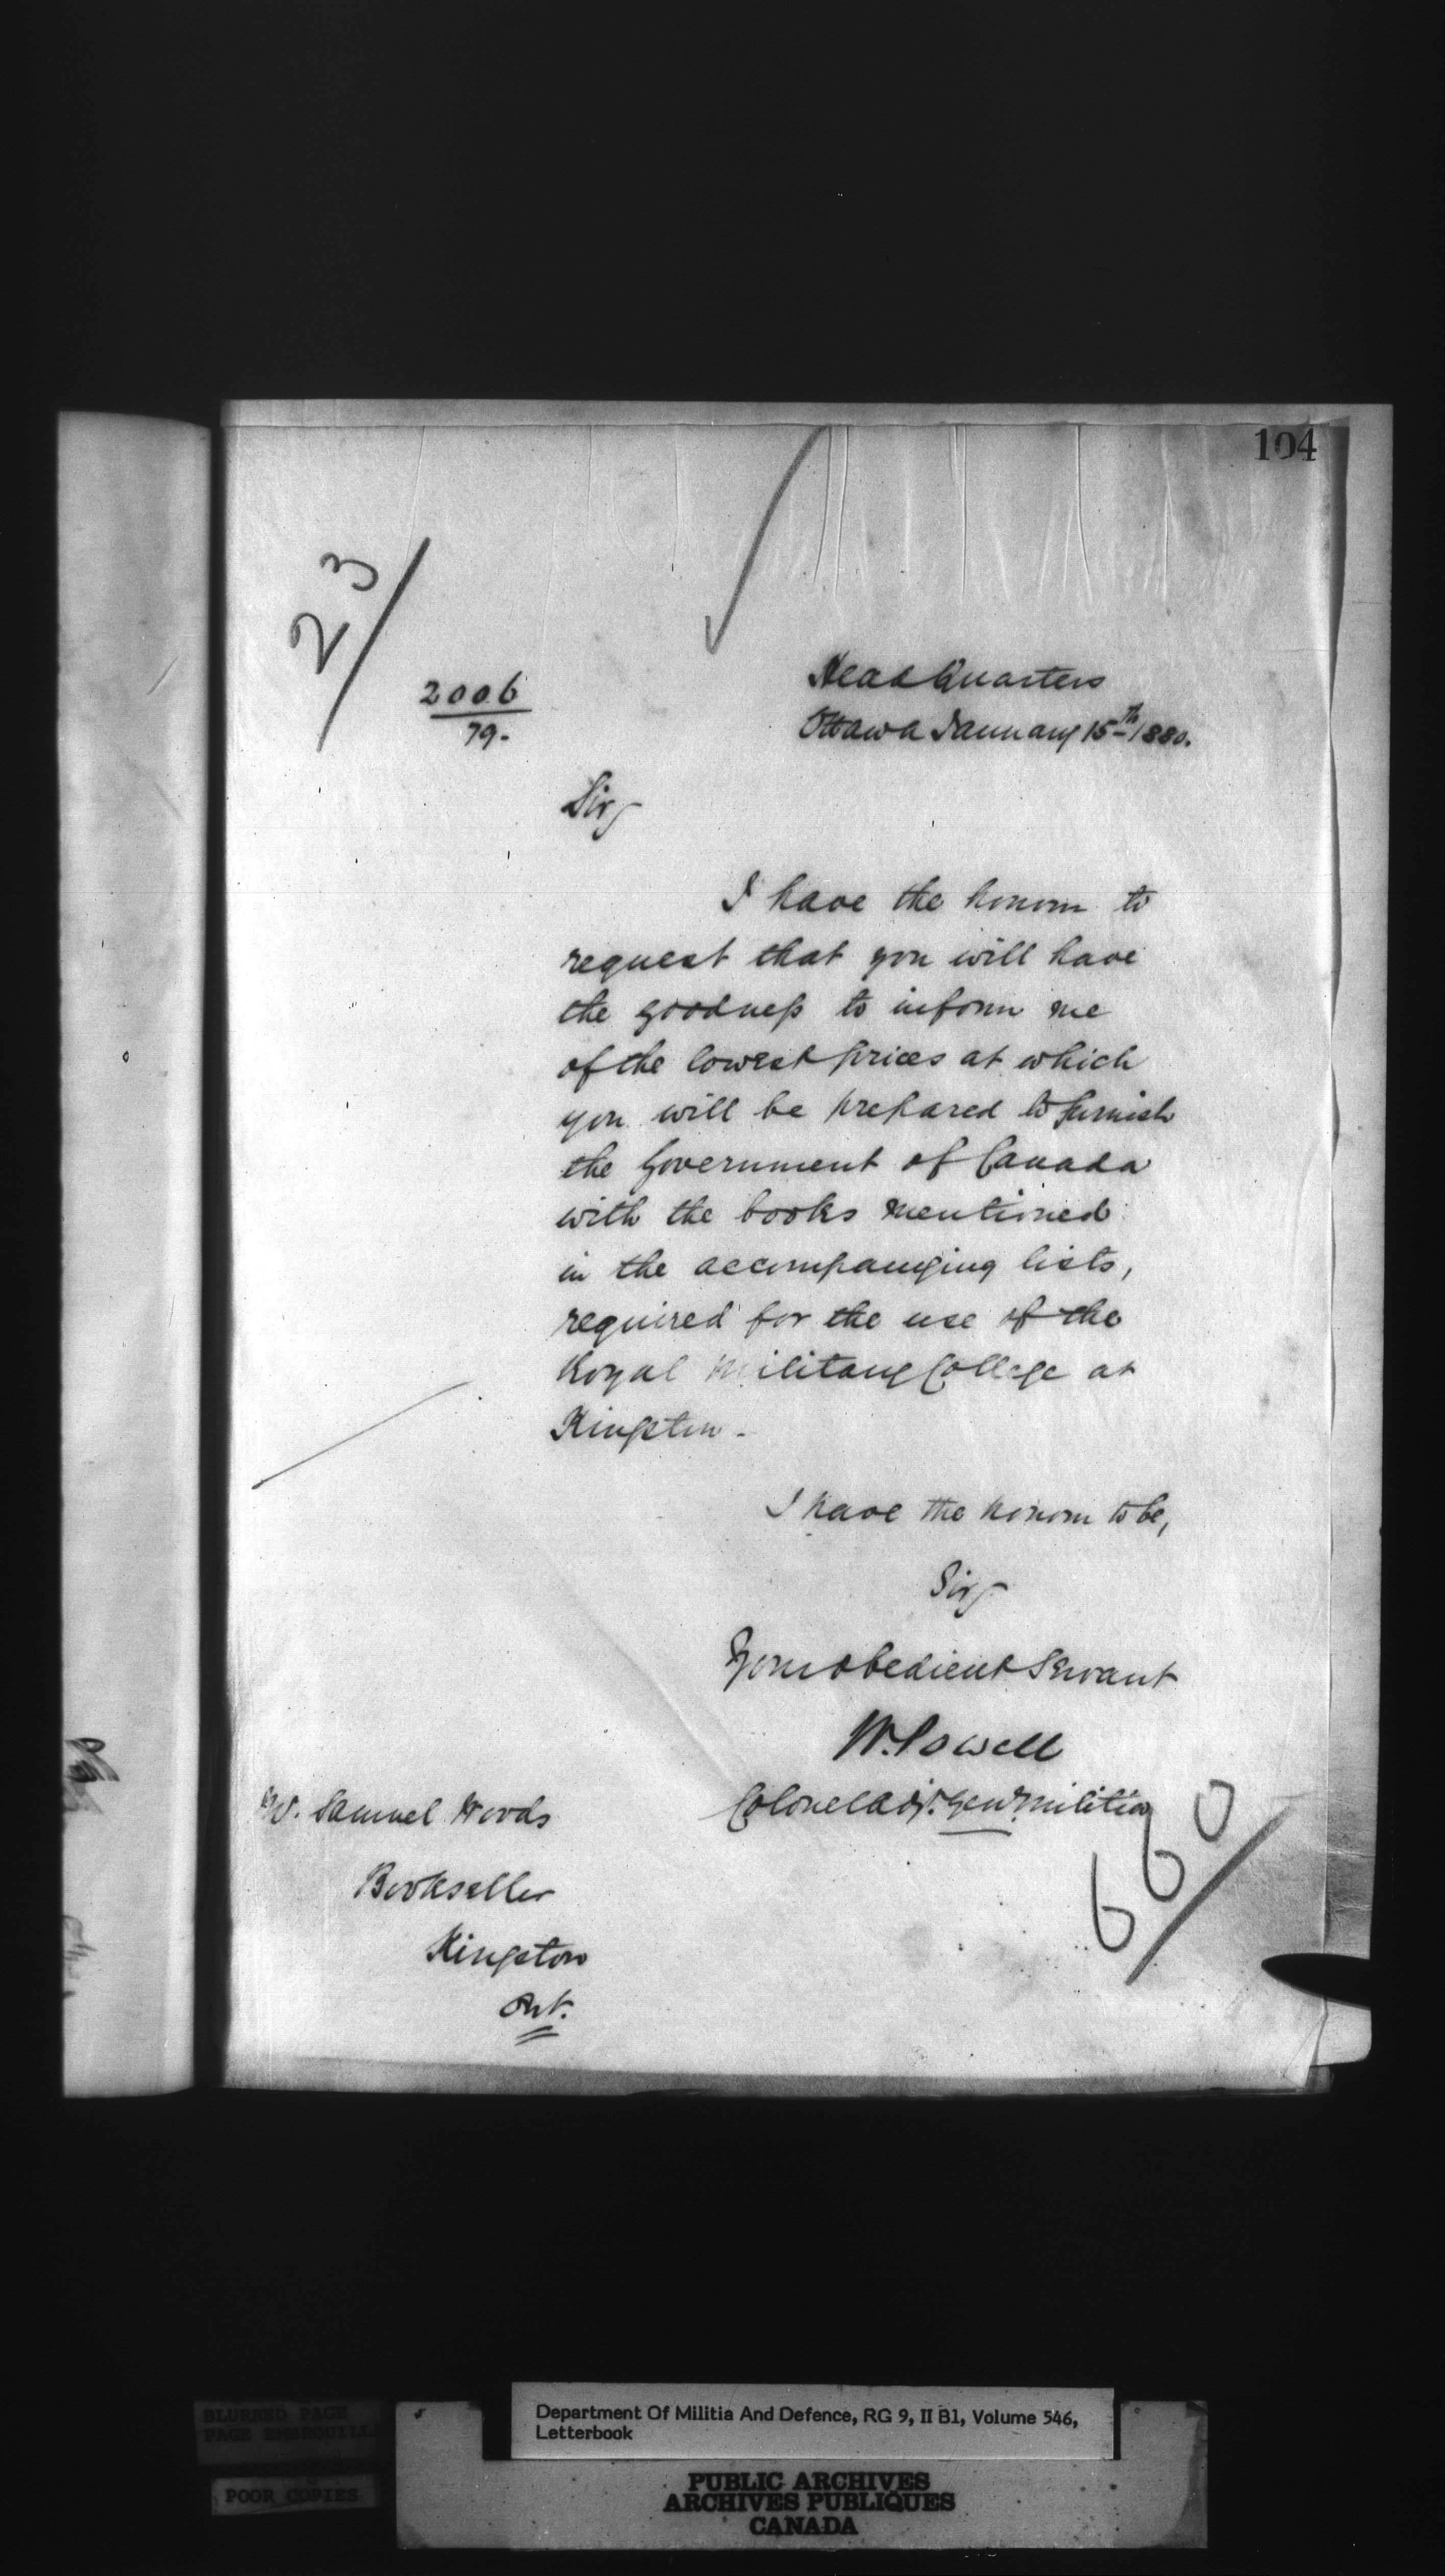 104
23
2006
79.
Head Quarters
Ottawa January 15th 1880.
Sir,
I have the honour to
request that you will have
the goodness to inform me
of the lowest prices at which
you will be prepared to furnish
the Government of Canada
with the books mentioned
in the accompanying lists,
required for the use of the
Royal Military College at
Kingston.
I have the honour to be,
Sir,
Your obedient Servant
W. Powell
Colonel Adj. Genl. Militia
660
Mr. Samuel Woods
Bookseller
Kingston
Ont.
BLURRED PAGE
PAGE EMBROUILL
POOR COPIES
Department Of Militia And Defence, RG 9, II B1, Volume 546,
Letterbook
PUBLIC ARCHIVES
ARCHIVES PUBLIQUES
CANADA